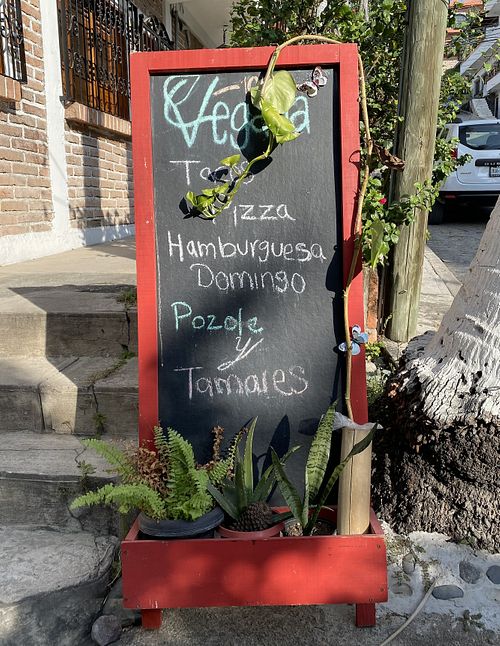 Vegana
Tacos
Pizza
Hamburguesa
Domingo
Pozole
y
Tamares